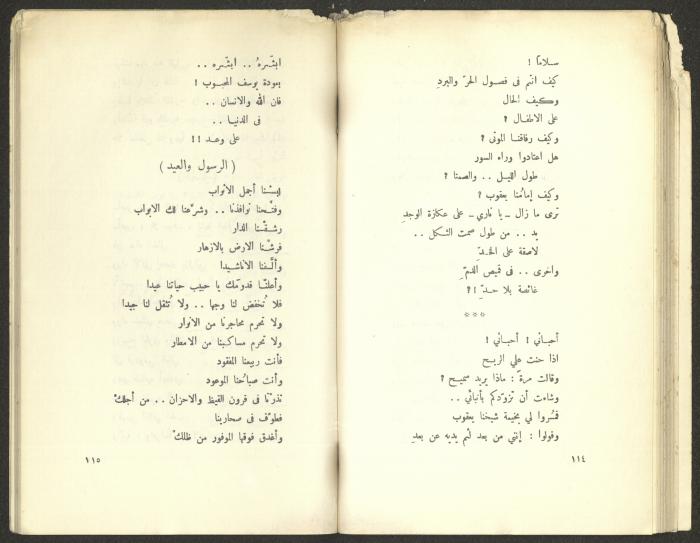 سلاما !
كيف انتم فى فصول الحرّ والبردِ
وكيف الحال
على الاطفال ؟
وكيف رفاقنا الموتى ؟
هل اعتادوا وراء السور
طول الليل .. والصمتا ؟
وكيف إمامُنا يعقوب ؟
ترى ما زال ـ يا ناري ـ على عكازة الوجدِ
يد .. من طول صمت الثكل ..
لاصقة على الخدِّ
واخرى .. فى قميص الدمِّ
غائصة بلا حدِّ !؟
***
أحبائي ! أحبائي !
اذا حنت علي الريح
وقالت مرةً : ماذا يريد سميح ؟
وشاءت أن تزوّدكم بأنبائي ..
فمُرّوا لي بخيمة شيخنا يعقوب
وقولوا : إنني من بعد لثم يديه عن بعدِ
١١٤
ابشّرهُ .. ابشّره ..
بعودة يوسف المحبوب !
فان الله والانسان ..
فى الدنيا ..
على وعد !!
( الرسول والعيد )
لبسْنا أجمل الاثواب
وفتّحنا نوافذنا .. وشرّعنا لك الابواب
رشقْنا الدار
فرشْنا الارض بالازهار
وألّفنا الأناشيدا
وأعلنّا قدومَك يا حبيب حياتنا عيدا
فلا تُخفض لنا وجها .. ولا تُثقل لنا جيدا
ولا تحرم محاجرنا من الانوار
ولا تحرم مساكبنا من الامطار
فأنت ربيعنا المفقود
وأنت صباحُنا الموعود
نذرْنا فى قرون القيظ والاحزان .. من أجلكْ
فطوّف فى صحارينا
وأغدق فوقها الموفور من ظلكْ
١١٥